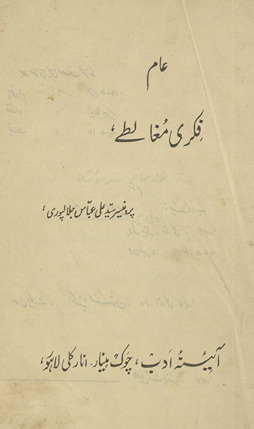 عام
فکری مُغالطے
پروفیسر سیّد علی عبّاس جلالپوری
آئینۂ اَدب، چوک مینار۔ انارکلی لاہور